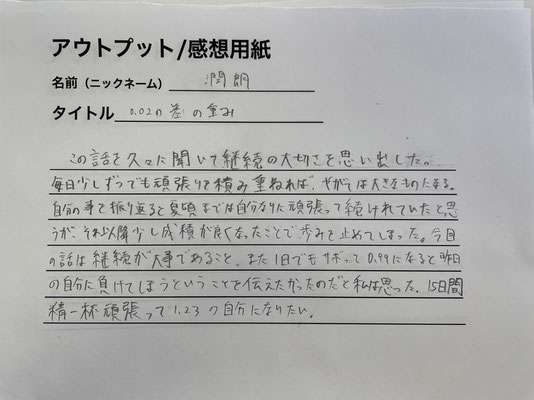 アウトプット/感想用紙
名前（ニックネーム） 潤明
タイトル 0.02の差の重み
この話を久々に聞いて継続の大切さを思い出した。
毎日少しずつでも頑張りを積み重ねれば、やがては大きなものになる。
自分の事を振り返ると夏頃までは自分なりに頑張って続けれていたと思
うが、それ以降少し成績が良くなったことで歩みを止めてしまった。今回
の話は継続が大事であること、また1日でもサボって0.99になると昨日
の自分に負けてしまうということを伝えたかったのだと私は思った。15日間
精一杯頑張って1.23の自分になりたい。